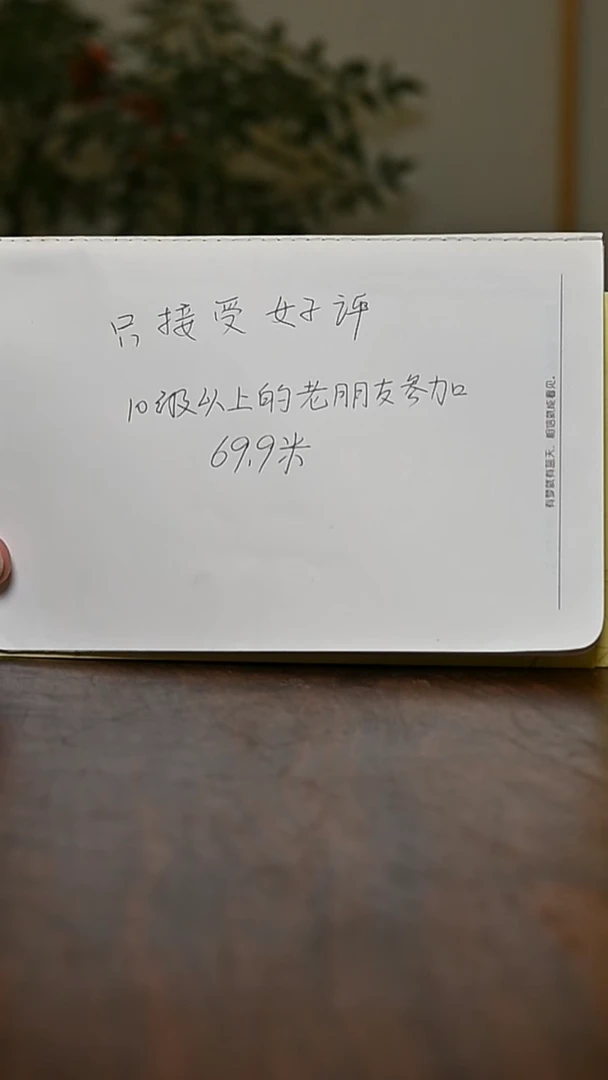 只接受好评
10级以上的老朋友参加
69.9米
有梦就有蓝天，相信就能看见。